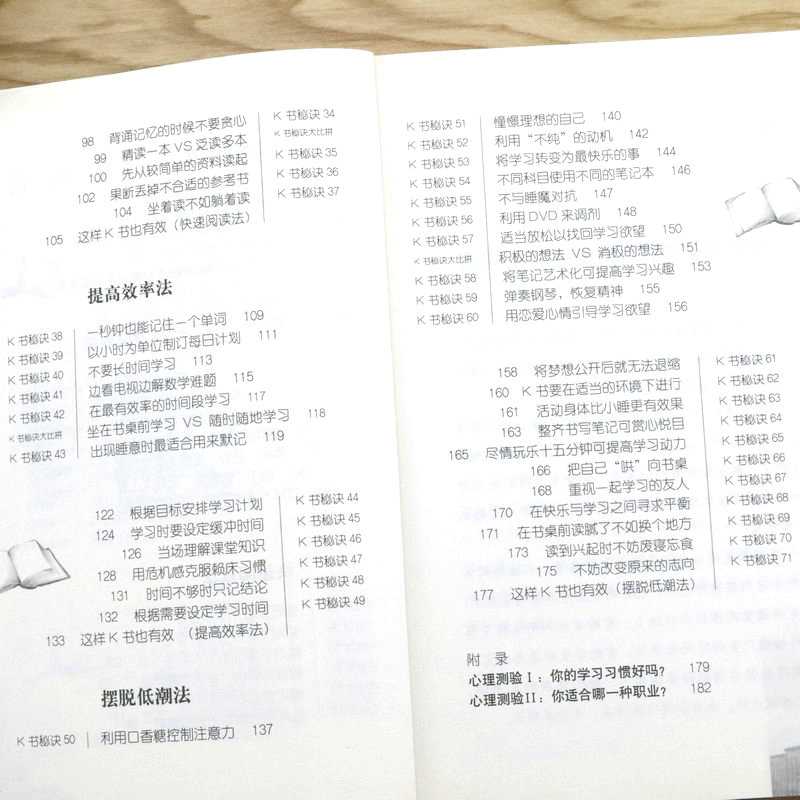 98 背诵记忆的时候不要贪心 K书秘诀34
99 精读一本VS泛读多本 K书秘诀大比拼
100 先从较简单的资料读起 K书秘诀35
102 果断丢掉不合适的参考书 K书秘诀36
104 坐着读不如躺着读 K书秘诀37
105 这样K书也有效（快速阅读法）
提高效率法
K书秘诀38 一秒钟也能记住一个单词 109
K书秘诀39 以小时为单位制订每日计划 111
K书秘诀40 不要长时间学习 113
K书秘诀41 边看电视边解数学难题 115
K书秘诀42 在最有效率的时间段学习 117
K书秘诀大比拼 坐在书桌前学习 VS 随时随地学习 118
K书秘诀43 出现睡意时最适合用来默记 119
122 根据目标安排学习计划 K书秘诀44
124 学习时要设定缓冲时间 K书秘诀45
126 当场理解课堂知识 K书秘诀46
128 用危机感克服赖床习惯 K书秘诀47
131 时间不够时只记结论 K书秘诀48
132 根据需要设定学习时间 K书秘诀49
133 这样K书也有效（提高效率法）
摆脱低潮法
K书秘诀50 利用口香糖控制注意力 137
K书秘诀51 憧憬理想的自己 140
K书秘诀52 利用“不纯”的动机 142
K书秘诀53 将学习转变为最快乐的事 144
K书秘诀54 不同科目使用不同的笔记本 146
K书秘诀55 不与睡魔对抗 147
K书秘诀56 利用DVD来调剂 148
K书秘诀57 适当放松以找回学习欲望 150
K书秘诀大比拼 积极的想法 VS 消极的想法 151
K书秘诀58 将笔记艺术化可提高学习兴趣 153
K书秘诀59 弹奏钢琴，恢复精神 155
K书秘诀60 用恋爱心情引导学习欲望 156
158 将梦想公开后就无法退缩 K书秘诀61
160 K书要在适当的环境下进行 K书秘诀62
161 活动身体比小睡更有效果 K书秘诀63
163 整齐书写笔记可赏心悦目 K书秘诀64
165 尽情玩乐十五分钟可提高学习动力 K书秘诀65
166 把自己“哄”向书桌 K书秘诀66
168 重视一起学习的友人 K书秘诀67
170 在快乐与学习之间寻求平衡 K书秘诀68
171 在书桌前读腻了不如换个地方 K书秘诀69
173 读到兴起时不妨废寝忘食 K书秘诀70
175 不妨改变原来的志向 K书秘诀71
177 这样K书也有效（摆脱低潮法）
附 录
心理测验I：你的学习习惯好吗？ 179
心理测验II：你适合哪一种职业？ 182